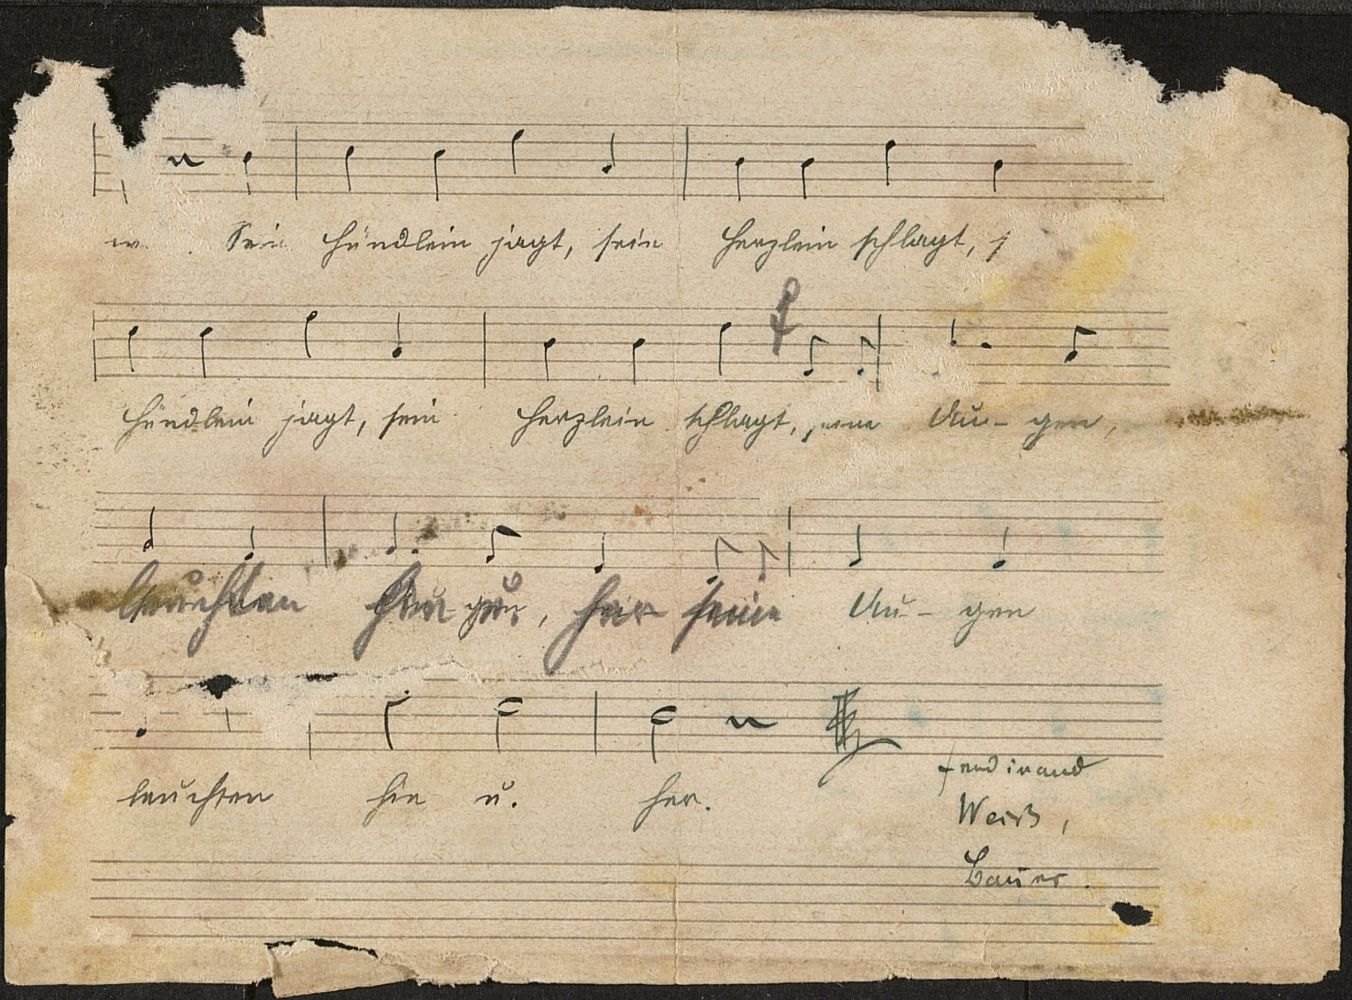 Sein Hündlein jagt, sein Herzlein schlagt, s
Hündlein jagt, sein Herzlein schlagt, seine Au-gen,
leuchten hin u. her seine Au-gen
leuchten hin u. her.
Ferdinand
Weiß,
Bauer.